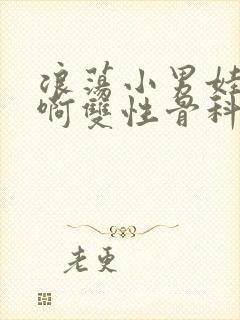 浪荡小男娃
啊雙性骨科
老更